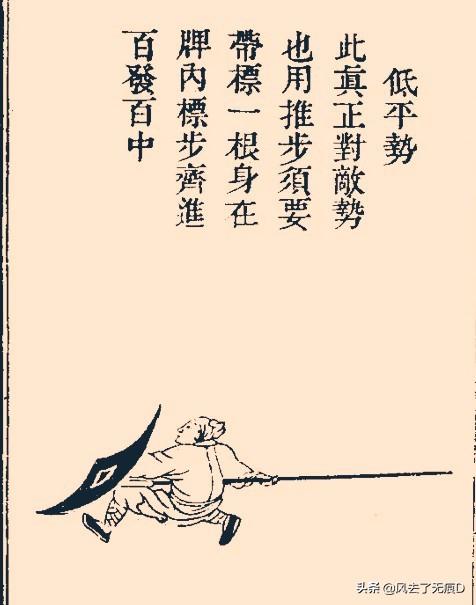 低平勢
此真正對敵勢
也用推步須要
帶標一根身在
牌內標步齊進
百發百中
头条 @风去了无痕D